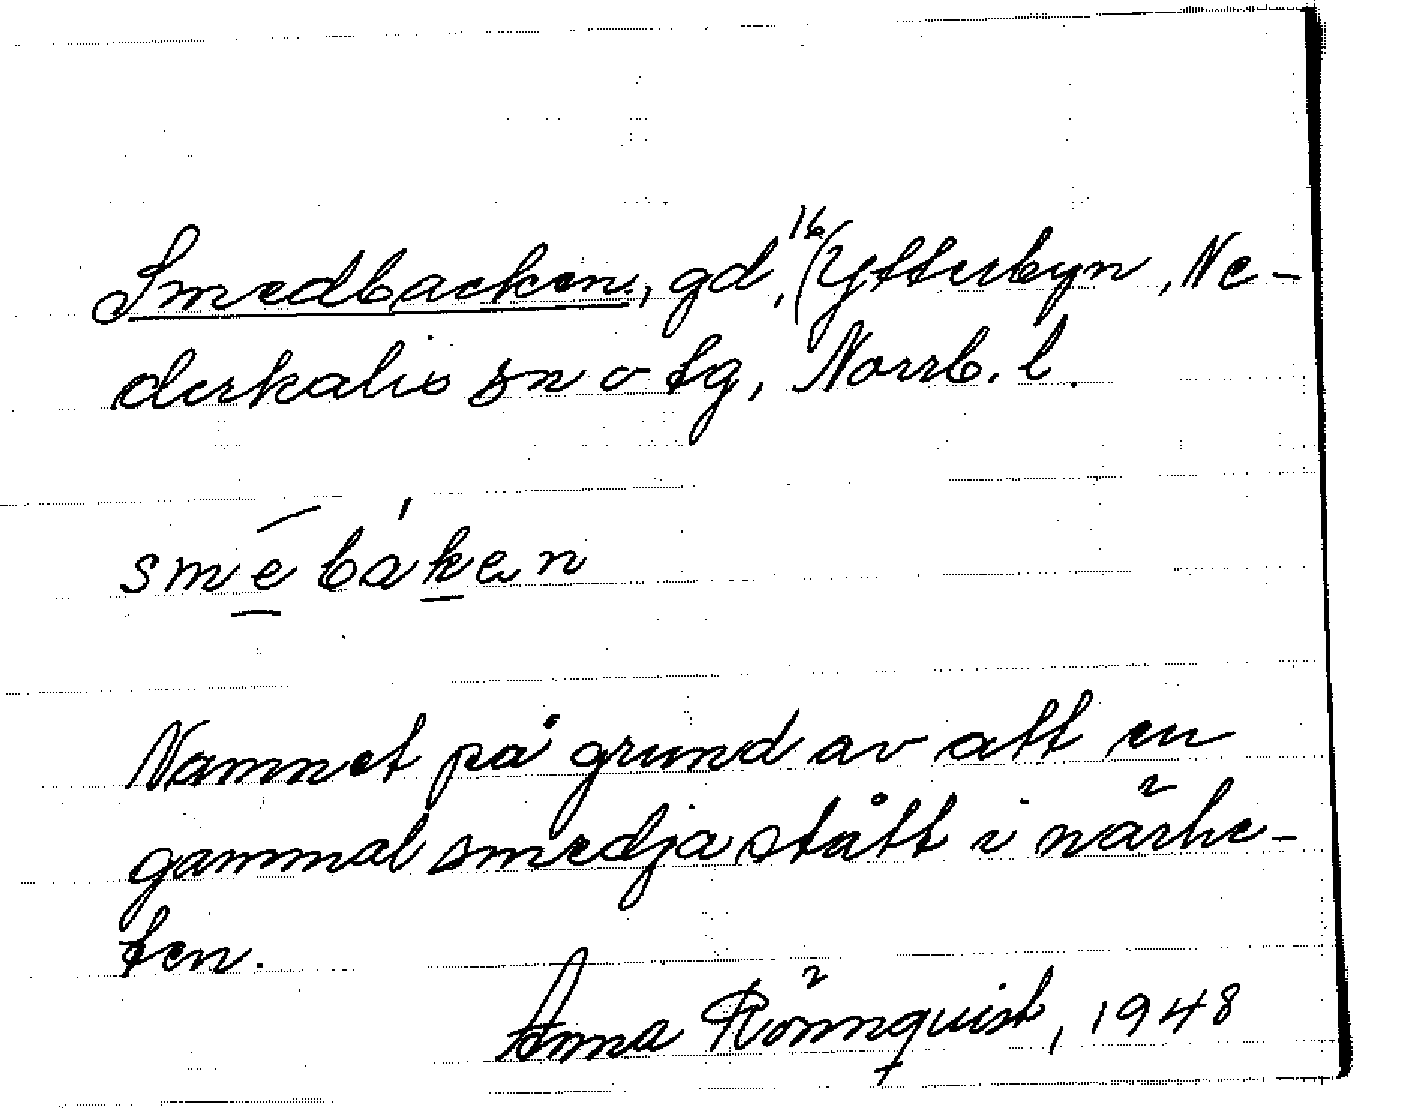 Smedbacken, gd, 16/Ytterbyn, Ne-
derkalix sn o tg, Norrb. l.
smēbáken
Namnet på grund av att en
gammal smedja stått i närhe-
ten.
Anna Rönnquist, 1948